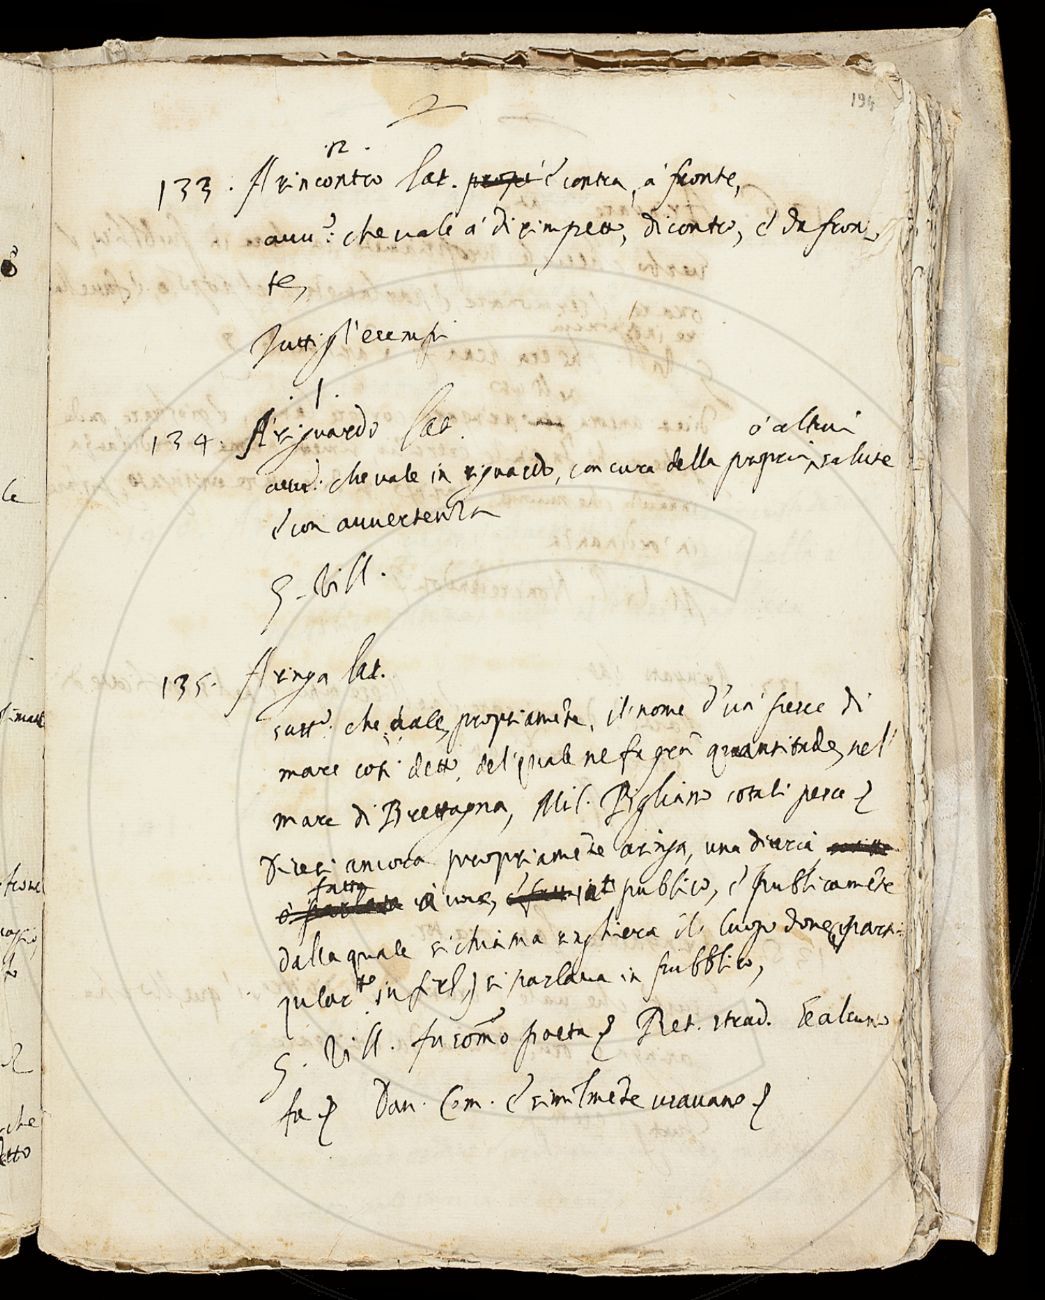 194
2
.n.
133. A rincontro lat. è contra, a fronte,
auu.o: che uale a dirimpetto, di contro, è da fron-
te,
Tutti gl'esempi
.1.
134. A riguardo lat.
ò altrui
auu.o: che uale in riguardo, con cura della propria salute
è con auuertenza
G. Vill.
135. Aringa lat.
sust.o: che uale propriamẽte, il nome d'un pesce di
mare così detto, del quale ne fa grã quantitade, nel
mare di Brettagna, Mil. Pigliano cotali pesce
Dicesi ancora propriamẽte aringa, una diceria
fatta
à uoce, pubblico, è pubblicamẽte
dalla quale si chiama ringhiera il luogo doue
si parlaua in pubblico,
G. Vill. fu sõmo poeta Ret. strad. alcuno
fa Dan. Com. è similmẽte usauano